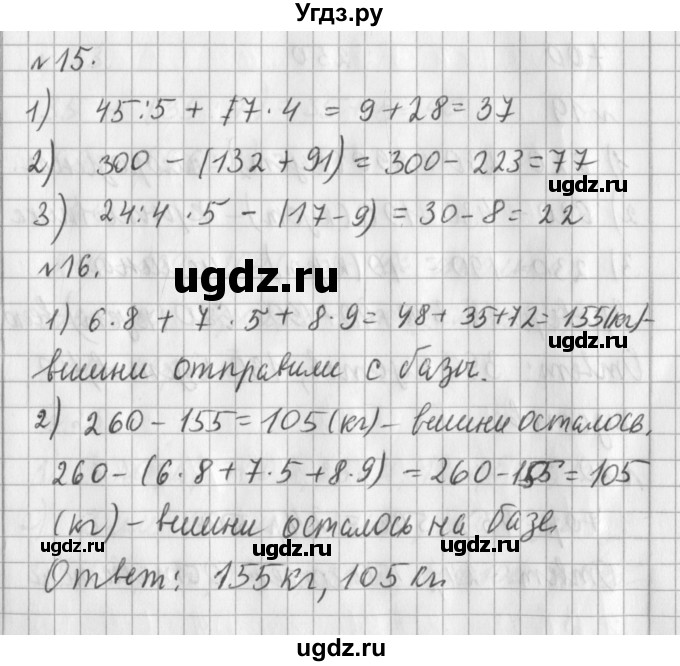 Угдз.ру
№15.
1) 45:5 + 7·4 = 9+28=37
2) 300 - (132+91) = 300-223=77
ugdz.ru
3) 24:4·5 - (17-9) = 30-8=22
№16.
ugdz.ru
1) 6·8 + 7·5 + 8·9 = 48+35+72=155(кг)-
ugdz.ru
вишни отправили с базы.
2) 260-155=105(кг)- вишни осталось.
260-(6·8+7·5+8·9) = 260-155=105
(кг)-вишни осталось на базе.
ugdz.ru
ugdz.ru
ugdz.ru
Ответ: 155кг, 105кг.
ugdz.ru